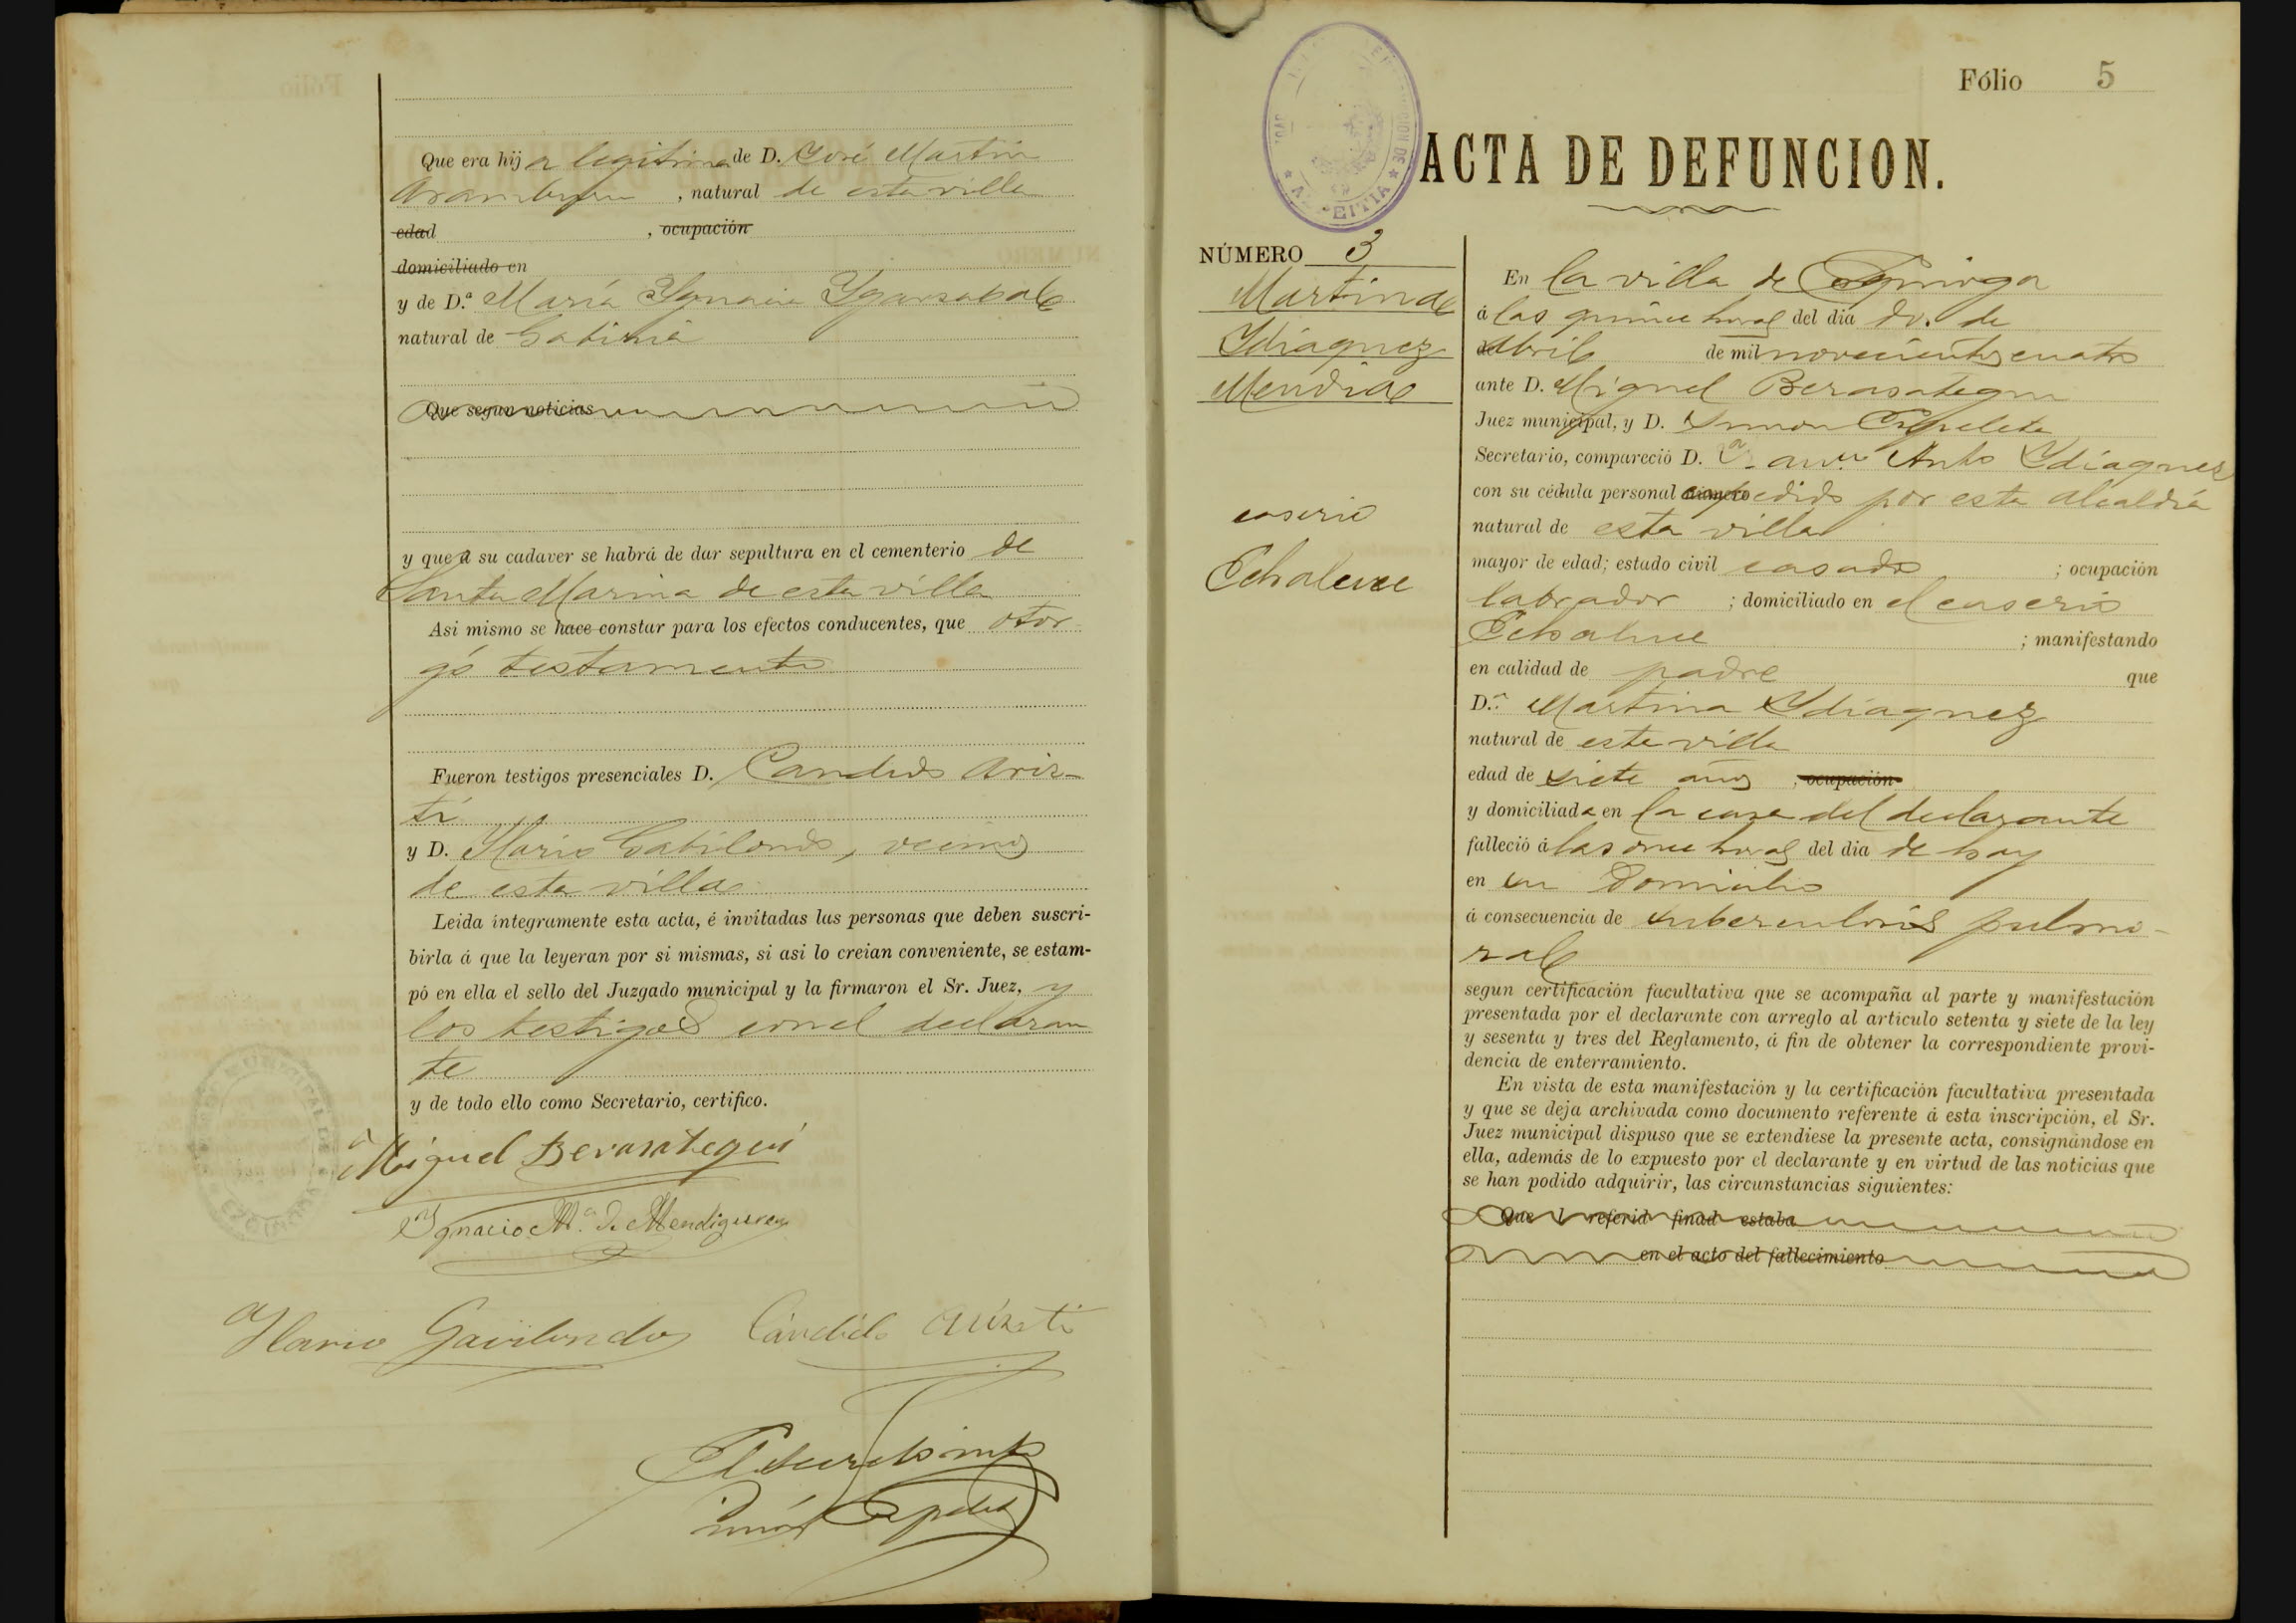 Que era hija legitima de D. José Martin
Aramburu, natural de esta villa
edad , ocupación
domiciliado en
y de D.ª María Ygnacia Ygarzabal
natural de Gabiria
Que segun noticias
y que a su cadaver se habrá de dar sepultura en el cementerio de
Santa Marina de esta villa
Asi mismo se hace constar para los efectos conducentes, que otor-
gó testamento
Fueron testigos presenciales D. Candido Ariz-
ti
y D. Ylario Gabilondo, vecinos
de esta villa
Leida íntegramente esta acta, é invitadas las personas que deben suscri-
birla á que la leyeran por si mismas, si asi lo creian conveniente, se estam-
pó en ella el sello del Juzgado municipal y la firmaron el Sr. Juez, y
los testigos con el declaran
te
y de todo ello como Secretario, certifico.
Miguel Berasategui
Ygnacio M.ª de Mendiguren
Ylario Gavilondo Cándido Arizti
Fólio 5
AZPEITIA
ACTA DE DEFUNCION.
NÚMERO 3
Martina
Ydiaquez
Mendia
caserio
Echaluce
En la villa de
á las quince horas del dia dos de
Abril de mil novecientos cuatro
ante D. Miguel Berasategui
Juez municipal, y D. Simon Espeleta
Secretario, compareció D. Anto Ydiaquez
con su cédula personal número expedido por esta Alcaldía
natural de esta villa
mayor de edad; estado civil casado ; ocupación
labrador ; domiciliado en el caserio
Echaluce ; manifestando
en calidad de padre que
D.ª Martina Ydiaquez
natural de esta villa
edad de siete años , ocupación
y domiciliada en la casa del declarante
falleció á las once horas del dia de hoy
en su domicilio
á consecuencia de tuberculosis pulmo-
nal
segun certificación facultativa que se acompaña al parte y manifestación
presentada por el declarante con arreglo al articulo setenta y siete de la ley
y sesenta y tres del Reglamento, á fin de obtener la correspondiente provi-
dencia de enterramiento.
En vista de esta manifestación y la certificación facultativa presentada
y que se deja archivada como documento referente á esta inscripción, el Sr.
Juez municipal dispuso que se extendiese la presente acta, consignándose en
ella, además de lo expuesto por el declarante y en virtud de las noticias que
se han podido adquirir, las circunstancias siguientes:
Que l referid finad estaba
en el acto del fallecimiento